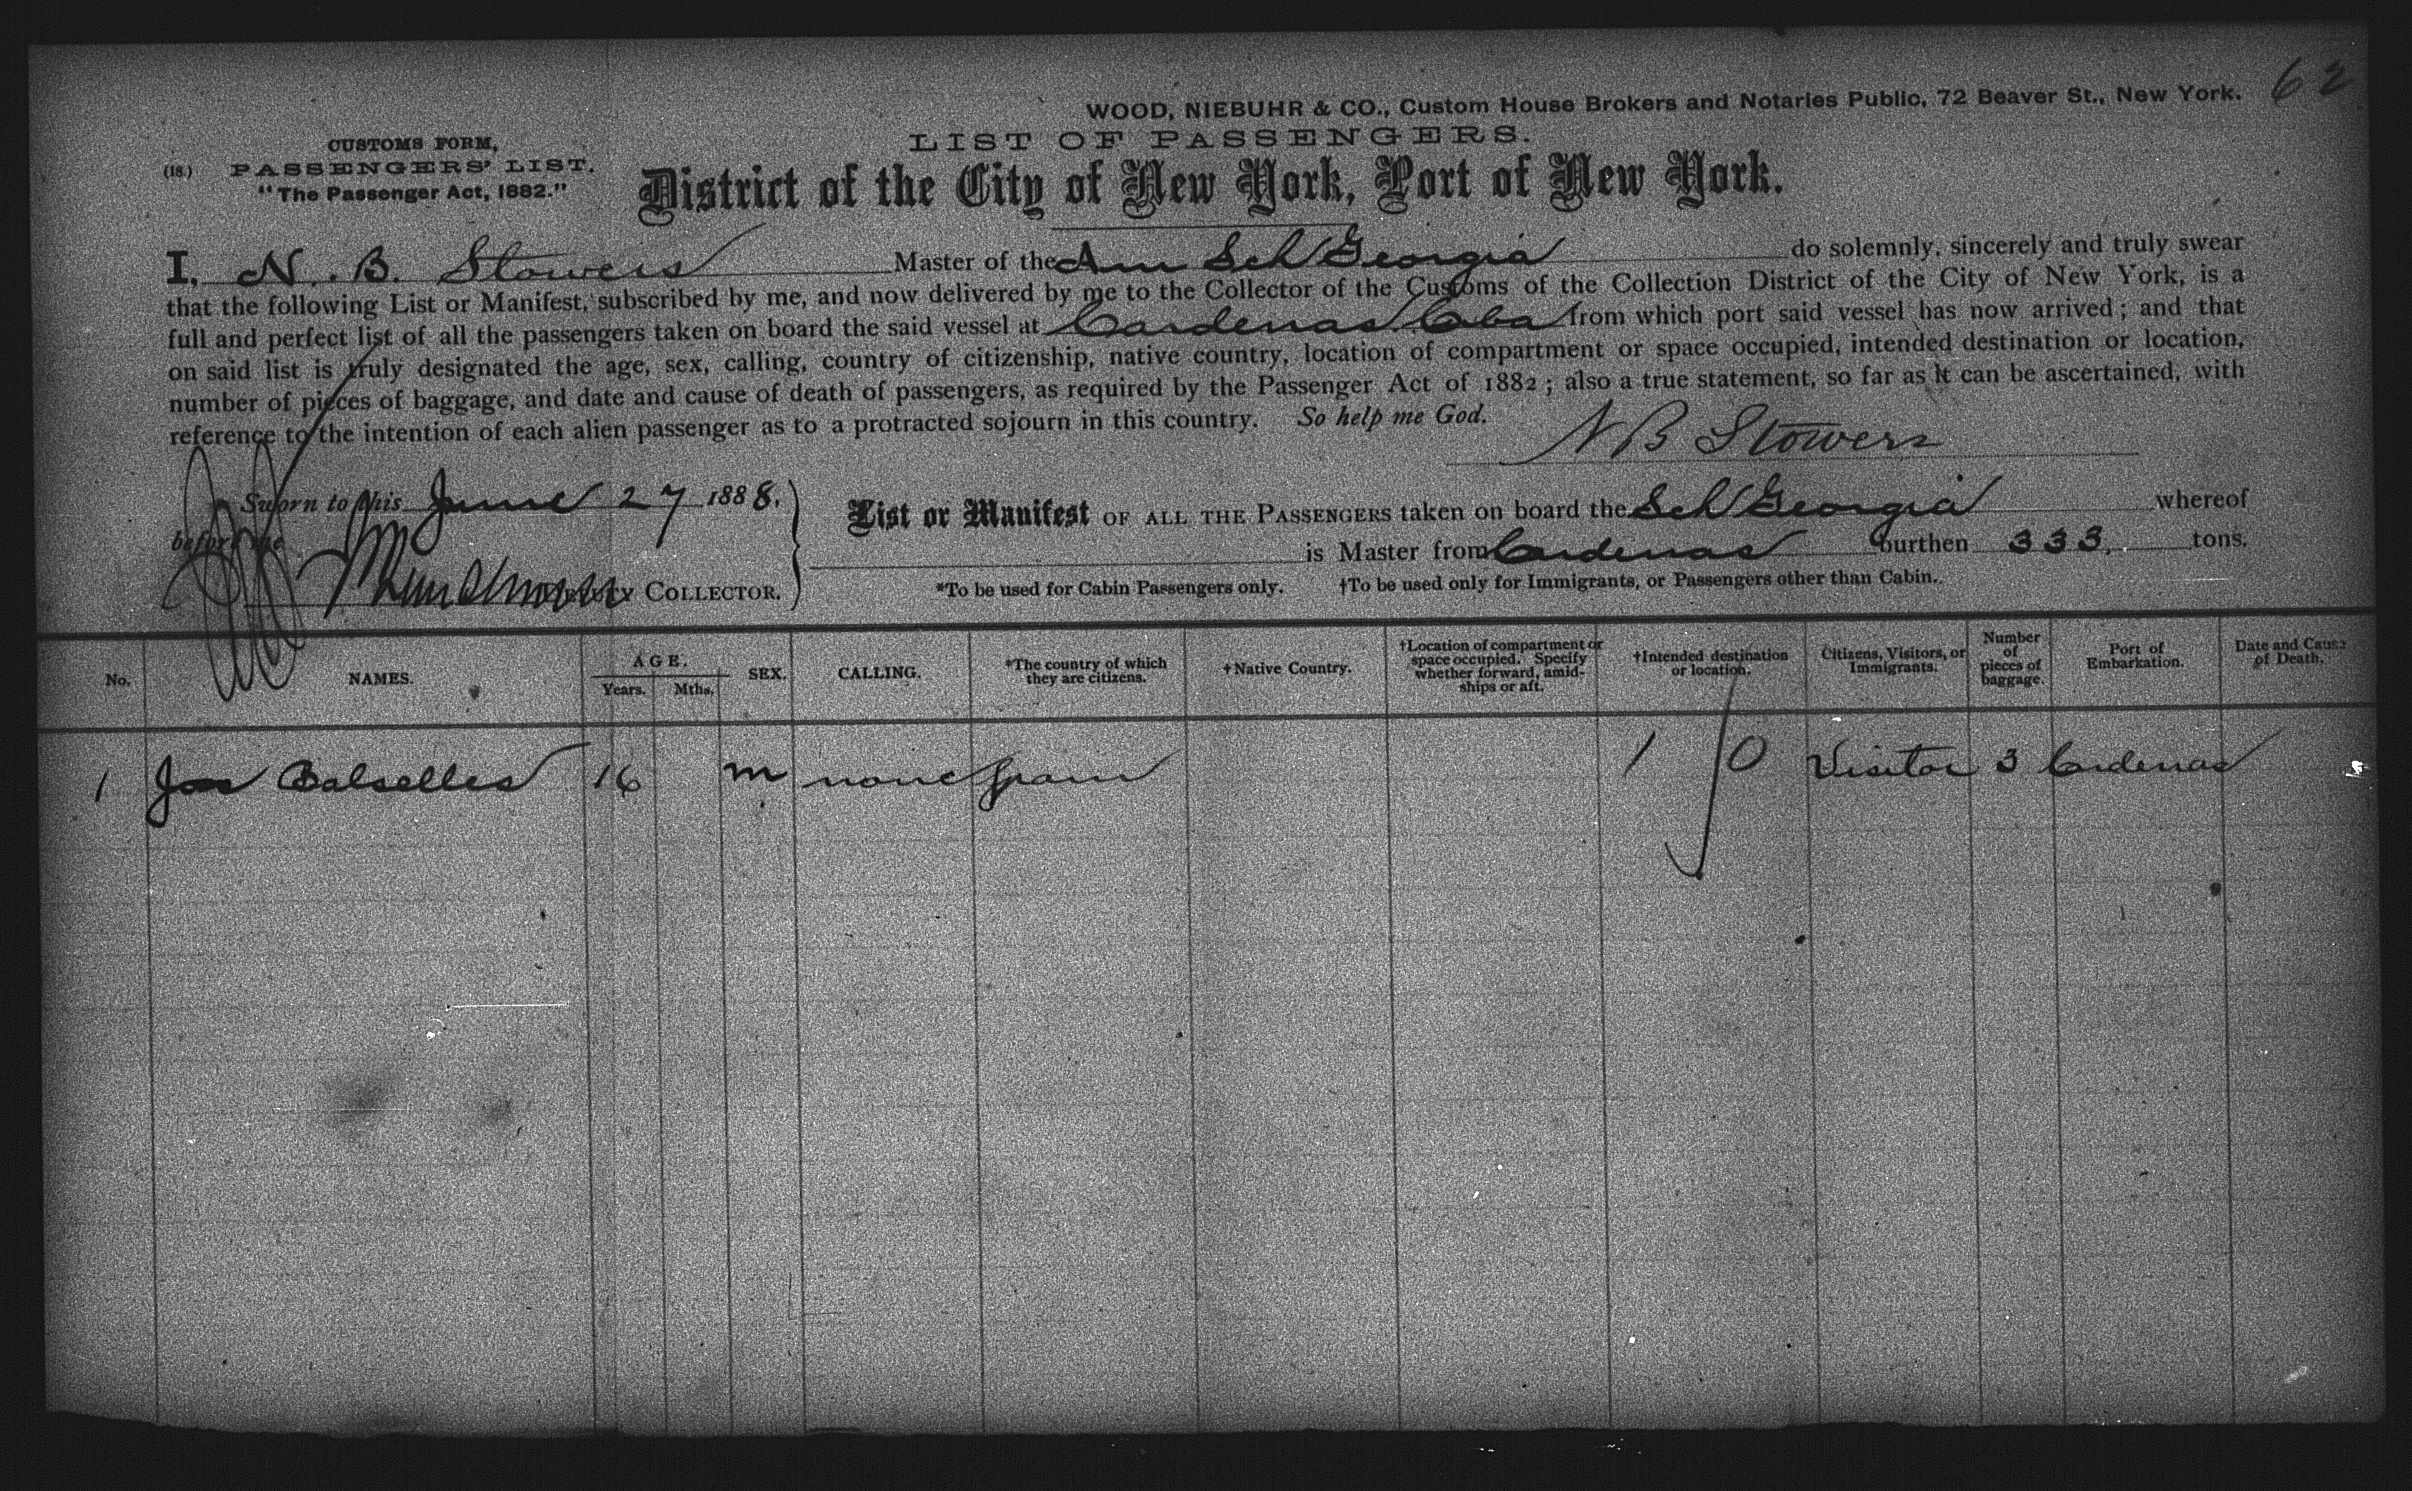 62
WOOD, NIEBUHR & CO., Custom House Brokers and Notaries Public, 72 Beaver St., New York.
CUSTOMS FORM,
(18.) PASSENGERS' LIST.
"The Passenger Act, 1882."
LIST OF PASSENGERS.
District of the City of New York, Port of New York.
I, N. B. Stowers Master of the Am Sch Georgia do solemnly, sincerely and truly swear
that the following List or Manifest, subscribed by me, and now delivered by me to the Collector of the Customs of the Collection District of the City of New York, is a
full and perfect list of all the passengers taken on board the said vessel at Cardenas Cuba from which port said vessel has now arrived; and that
on said list is truly designated the age, sex, calling, country of citizenship, native country, location of compartment or space occupied, intended destination or location,
number of pieces of baggage, and date and cause of death of passengers, as required by the Passenger Act of 1882; also a true statement, so far as it can be ascertained, with
reference to the intention of each alien passenger as to a protracted sojourn in this country. So help me God.
N B Stowers
Sworn to this June 27 1888.
before me
DEPUTY COLLECTOR.
List or Manifest OF ALL THE PASSENGERS taken on board the Sch Georgia whereof
is Master from Cardenas burthen 333. tons.
*To be used for Cabin Passengers only. †To be used only for Immigrants, or Passengers other than Cabin.
No. NAMES. AGE. Years. Mths. SEX. CALLING. *The country of which they are citizens. †Native Country. †Location of compartment or space occupied. Specify whether forward, amidships or aft. †Intended destination or location. Citizens, Visitors, or Immigrants. Number of pieces of baggage. Port of Embarkation. Date and Cause of Death.
1 Jos Balselles 16 m none Spain 1 0 Visitor 3 Cardenas